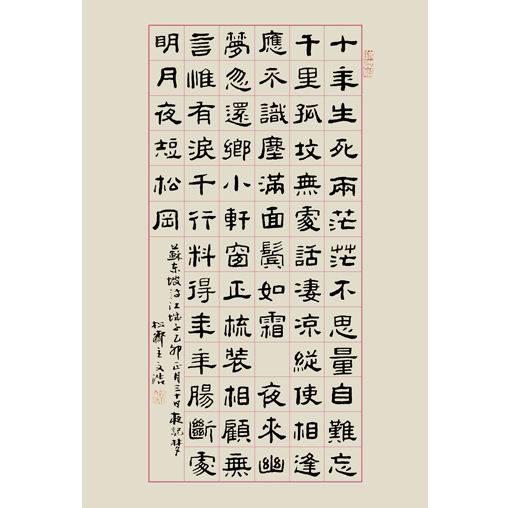 十年生死兩茫茫不思量自難忘
千里孤坟無處話淒涼縱使相逢
應不識塵滿面鬢如霜 夜來幽
夢忽還鄉小軒窗正梳裝相顧無
言惟有淚千行料得年年腸斷處
明月夜短松岡
蘇東坡詞江城子乙卯正月三十日夜記夢
松齋主文浩